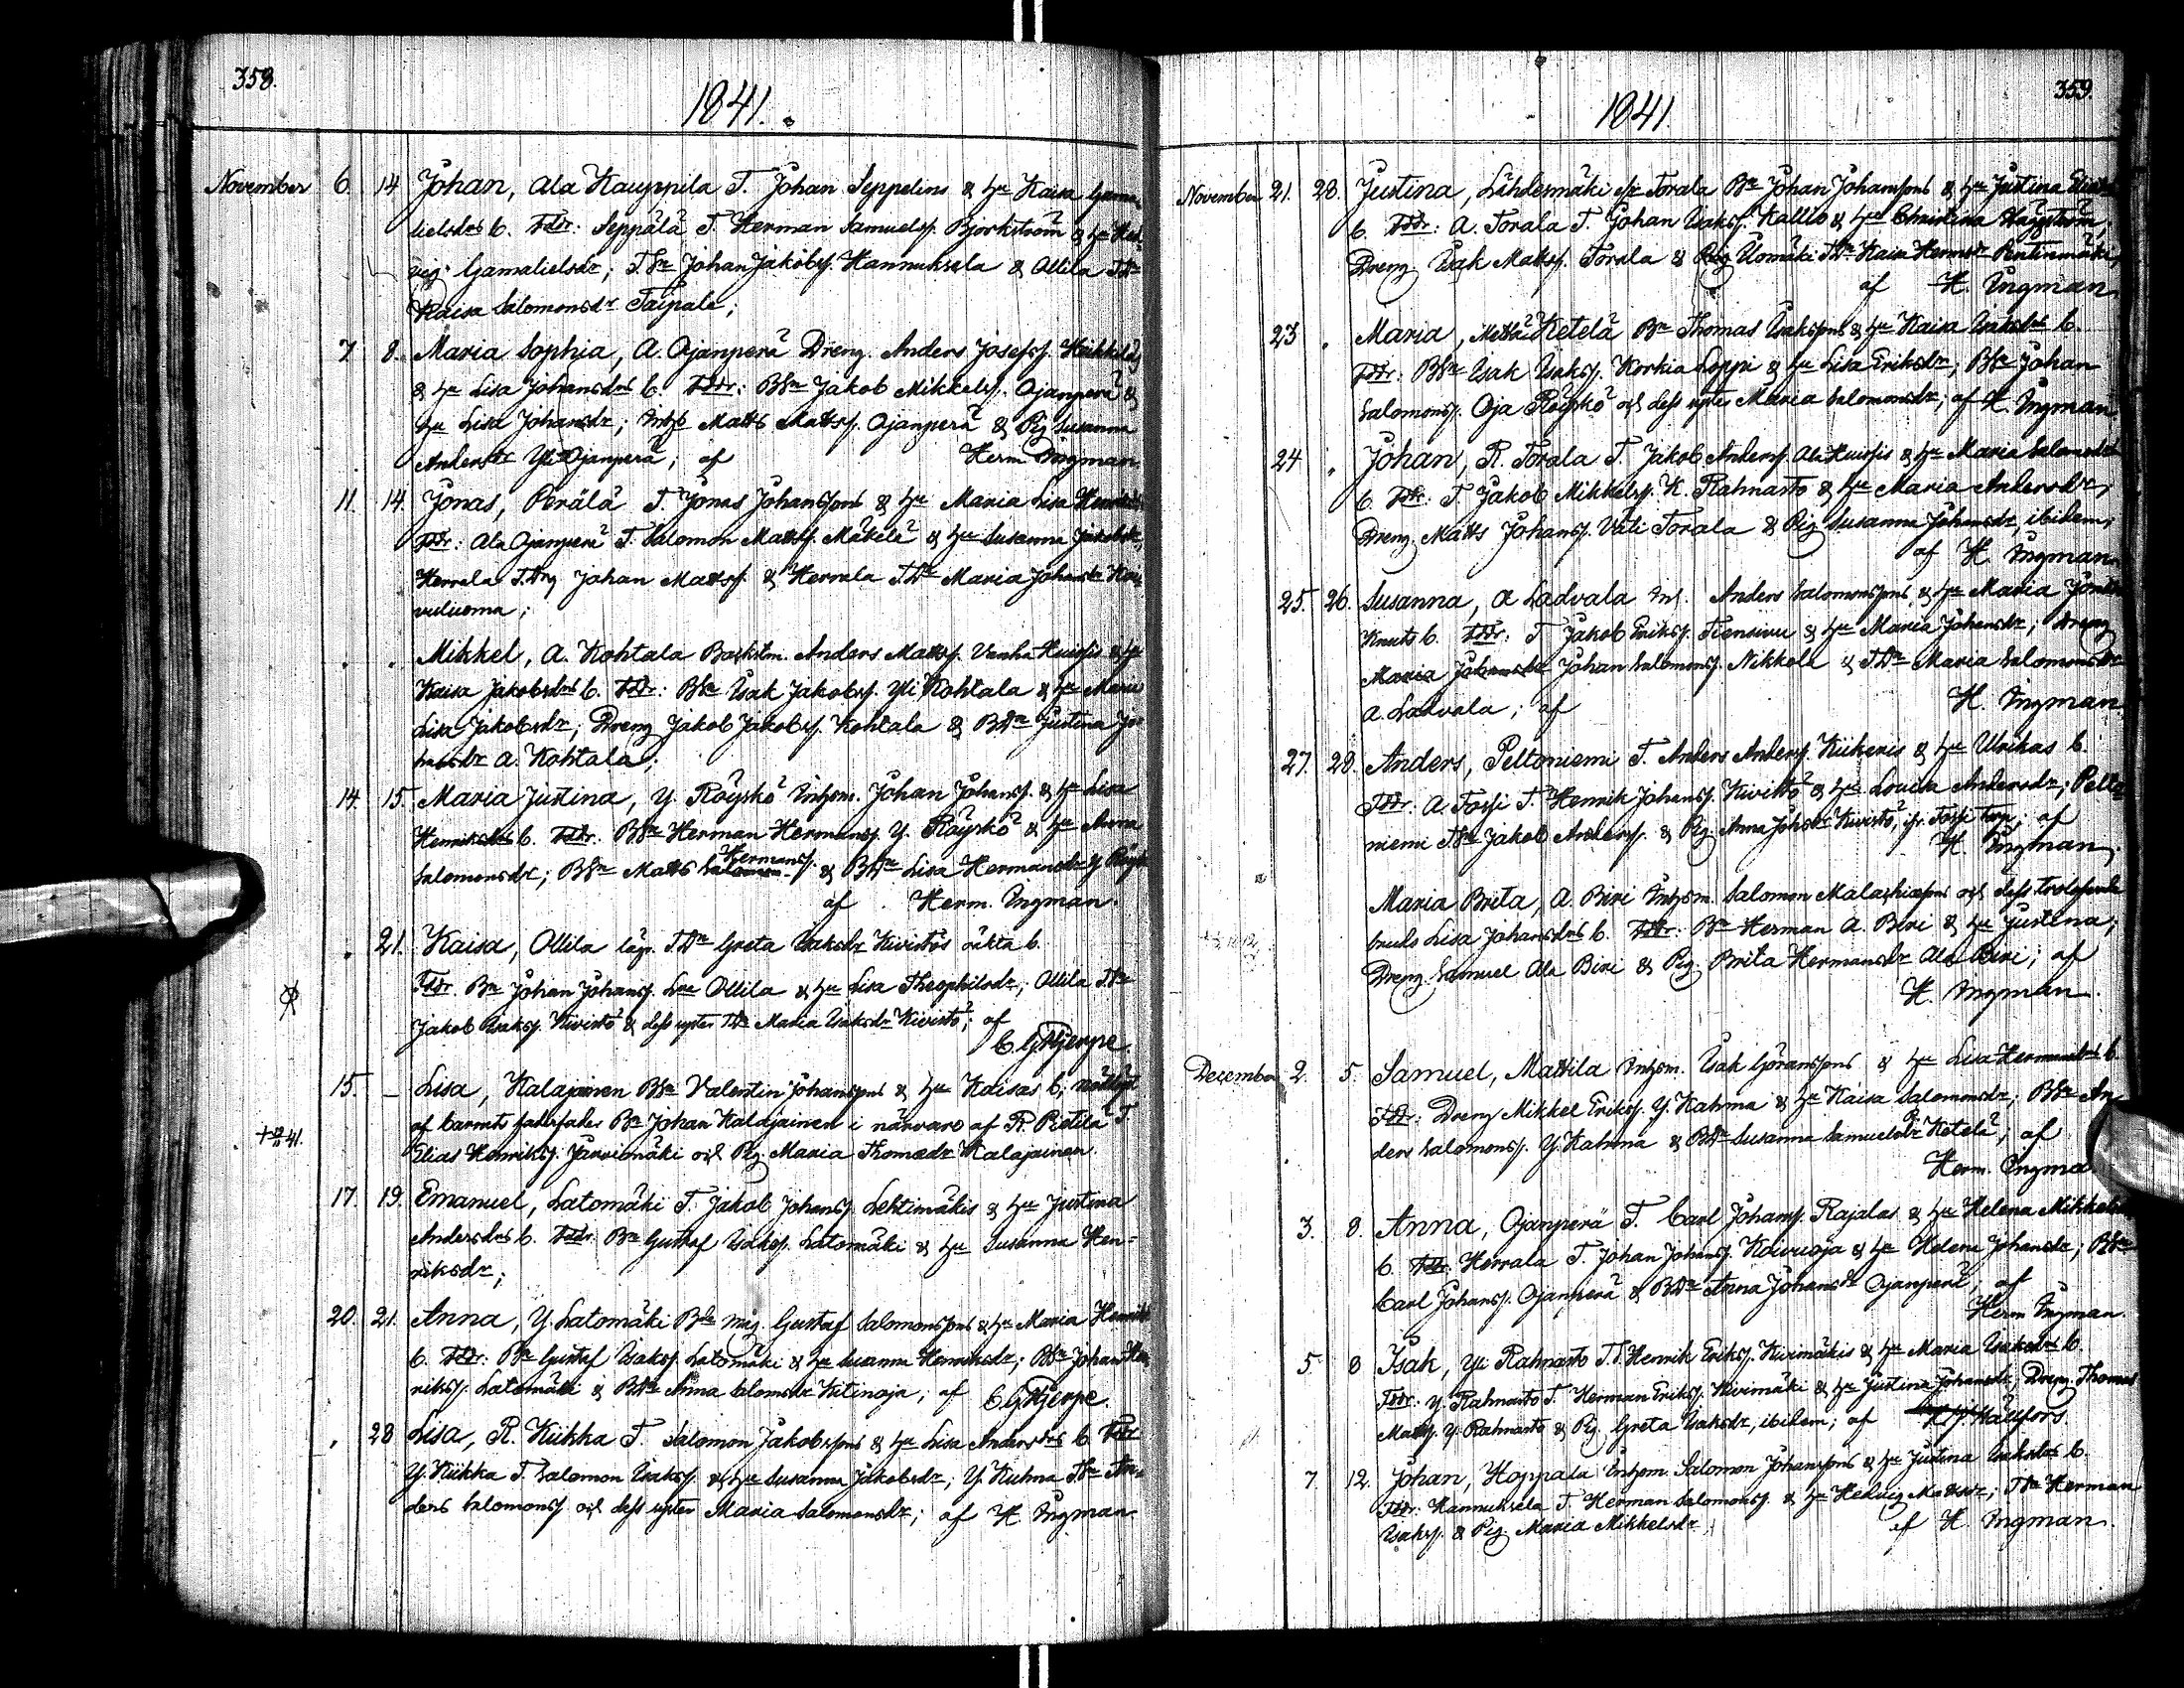 358.
1841.
November 6. 14 Johan, Ala Kauppila T. Johan Seppelins & Hu Kaisa Gama-
lielsdrs b. Fddr: Seppälä T. Herman Samuelsf. Björkström & Hu Hed-
vig Gamalielsdr; T.Sn Johan Jakobsf. Hannuksela & Ollila T.Dr
Kaisa Salomonsdr Taipale;
7 8. Maria Sophia, A. Ojanperä Dreng. Anders Josefsf. Heikkilä
& Hu Lisa Johansdrs b. Fddr: BSn Jakob Mikkelsf. Ojanperä &
Hu Lisa Johansdr; Matts Mattsf. Ojanperä & Pig. Susanna
Andersdr Yli Ojanperä; af Herm. Ingman
11. 14. Jonas, Perälä T. Jonas Johanssons & Hu Maria Lisa
Fddr: Ala Ojanperä T. Salomon Mattsf. Mäkelä & Hu Susanna Jakobsdr,
Herrala T.Drg Johan Mattsf. & Herrala T.Dr Maria Johansdr
vuluoma;
. . Mikkel, A. Kohtala Backstm. Anders Mattsf. Vanha Huissis & Hu
Kaisa Jakobsdrs b. Fddr: BSn Isak Jakobsf. Yli Kohtala & Hu Maria
Lisa Jakobsdr; Dreng Jakob Jakobsf. Kohtala & BDr Justina Jo-
hansdr A. Kohtala;
14. 15. Maria Justina, Y. Röyskö Inhsm. Johan Johansf. & Hu Lisa
Henriksdrs b. Fddr. BSn Herman Hermansf. Y. Röyskö & Hu Anna
Salomonsdr; BSn Matts Hermansf. & BDr Lisa Hermansdr Y.
af Herm. Ingman.
. 21. Kaisa, Ollila läg. T.Dr Greta Isaksdr Kivistös oäkta b.
Fddr. Bn Johan Johansf. Ollila & Hu Lisa Theophilsdr; Ollila T.Sn
Jakob Isaksf. Kivistö & dess syster T.Dr Maria Isaksdr Kivistö; af
C. G. Hjerpe.
15. – Lisa, Kalajainen BSn Valentin Johanssons & Hu Kaisas b; nöddöpt
af barnets faderfader Bn Johan Kalajainen i närvaro af R. Pietilä T.
+ 41. Elias Henriksf. Järviomäki och Pig. Maria Thomasdr Kalajainen.
17. 19. Emanuel, Latomäki T. Jakob Johansf. Lehtimäkis & Hu Justina
Andersdrs b. Fddr. Bn Gustaf Isaksf. Latomäki & Hu Susanna Hen-
riksdr;
20. 21. Anna, Y. Latomäki Bde måg. Gustaf Salomonssons & Hu Maria
b. Fddr: Bn Gustaf Isaksf. Latomäki & Hu Susanna Henriksdr; BSn Johan Hen-
riksf. Latomäki & BDr Anna Salomsdr Kitinoja; af C. G. Hjerpe.
. 28 Lisa, R. Kiikka T. Salomon Jakobssons & Hu Lisa Andersdrs b. Fddr
Y. Kiikka T. Salomon Isaksf. & Hu Susanna Jakobsdr; Y. Kuhna TSn An-
ders Salomonsf. och dess syster Maria Salomonsdr; af H. Ingman.
359.
1841.
November 21. 28. Justina, Lähdesmäki Torala Bn Johan Johanssons & Hu Justina
b. Fddr: A. Torala T. Johan Isaksf. Kallio & Hu Christina Häggström,
Dreng Isak Mattsf. Torala & Pig. T.Dr Kaisa Hermsdr Pentinmäki,
af H. Ingman
23 . Maria, Ketelä Bn Thomas Isakssons & Hu Kaisa Isaksdrs b.
Fddr: BSn Isak Isaksf. Korkia Loppi & Hu Lisa Eriksdr; BSn Johan
Salomonsf. Oja Röyskö och dess syster Maria Salomonsdr; af H. Ingman.
24 . Johan, R. Torala T. Jakob Andersf. Ala Huissis & Hu Maria Salomsdrs
b. Fddr: T. Jakob Mikkelsf. K. Rahnasto & Hu Maria Andersdr;
Dreng Matts Johansf. Väli Torala & Pig. Susanna Johansdr, ibidem;
af H. Ingman.
25. 26. Susanna, A Ladvala Inh. Anders Salomonssons & Hu Maria
Knuts b. Fddr: T Jakob Eriksf. Tiensivu & Hu Maria Johansdr; Dreng
Johan Salomonsf. Nikkola & T.Dr Maria Salomonsdr
A. Ladvala; af H. Ingman.
27. 28. Anders, Peltoniemi T. Anders Andersf. Kiikeris & Hu Ulrikas b.
Fddr: A. Fossi T. Henrik Johansf. Kivistö & Hu Lovisa Andersdr; Pelto-
niemi TSn Jakob Andersf. & Pig. Anna Johsdr Kivistö, fr. Fossi Torp; af
H. Ingman.
Maria Brita, A. Biri Inhsm. Salomon Malachiæsons och dess trolofvade
bruds Lisa Johansdrs b. Fddr: Bn Herman A. Biri & Hu Justina;
Dreng Samuel Ala Biri & Pig. Brita Hermansdr Ala Biri; af
H. Ingman.
December 2. 5. Samuel, Mattila Inhsm. Isak Göranssons & Hu Lisa Hermansdrs b
Fddr: Dreng Mikkel Eriksf. Y. Kahma & Hu Kaisa Salomonsdr; BSn An-
ders Salomonsf. Y. Kahma & BDr Susanna Samuelsdr Ketelä; af
Herm. Ingma
3. 8. Anna, Ojanperä T. Carl Johansf. Rajalas & Hu Helena Mikkelsdrs
b. Fddr. Herrala T. Johan Johansf. Koivuoja & Hu Helena Johansdr; BSn
Carl Johansf. Ojanperä & BDr Anna Johansdr Ojanperä; af
Herm Ingman.
5 8 Isak, Yli Rahnasto T. Henrik Eriksf. Kivimäkis & Hu Maria Isaksdrs b.
Fddr: Y. Rahnasto T. Herman Eriksf. Kivimäki & Hu Justina Johansdr; Dreng Thomas
Mattsf. Y. Rahnasto & Pig. Greta Isaksdr, ibidem; af Hällfors.
7. 12. Johan, Hoppala Inhsm. Salomon Johanssons & Hu Justina Isaksdrs b.
Fddr: Hannuksela T. Herman Salomonsf. & Hu Hedvig Mattsdr; TSn Herman
Isaksf. & Pig. Maria Mikkelsdr; af H. Ingman.